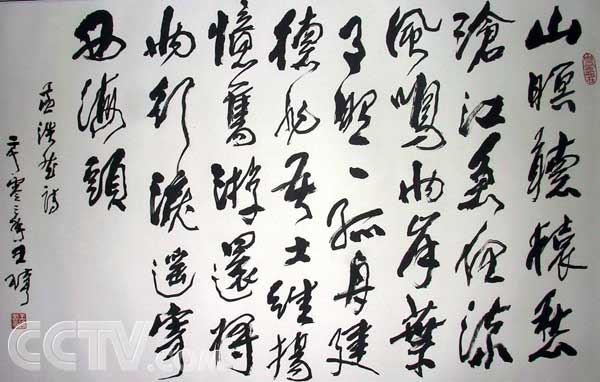 山暝聽猿愁
滄江急夜流
風鳴两岸葉
月照一孤舟建
德非吾土維揚
憶舊游還將
两行淚遥寄
西海頭
孟浩然詩
零三年王
CCTV.com